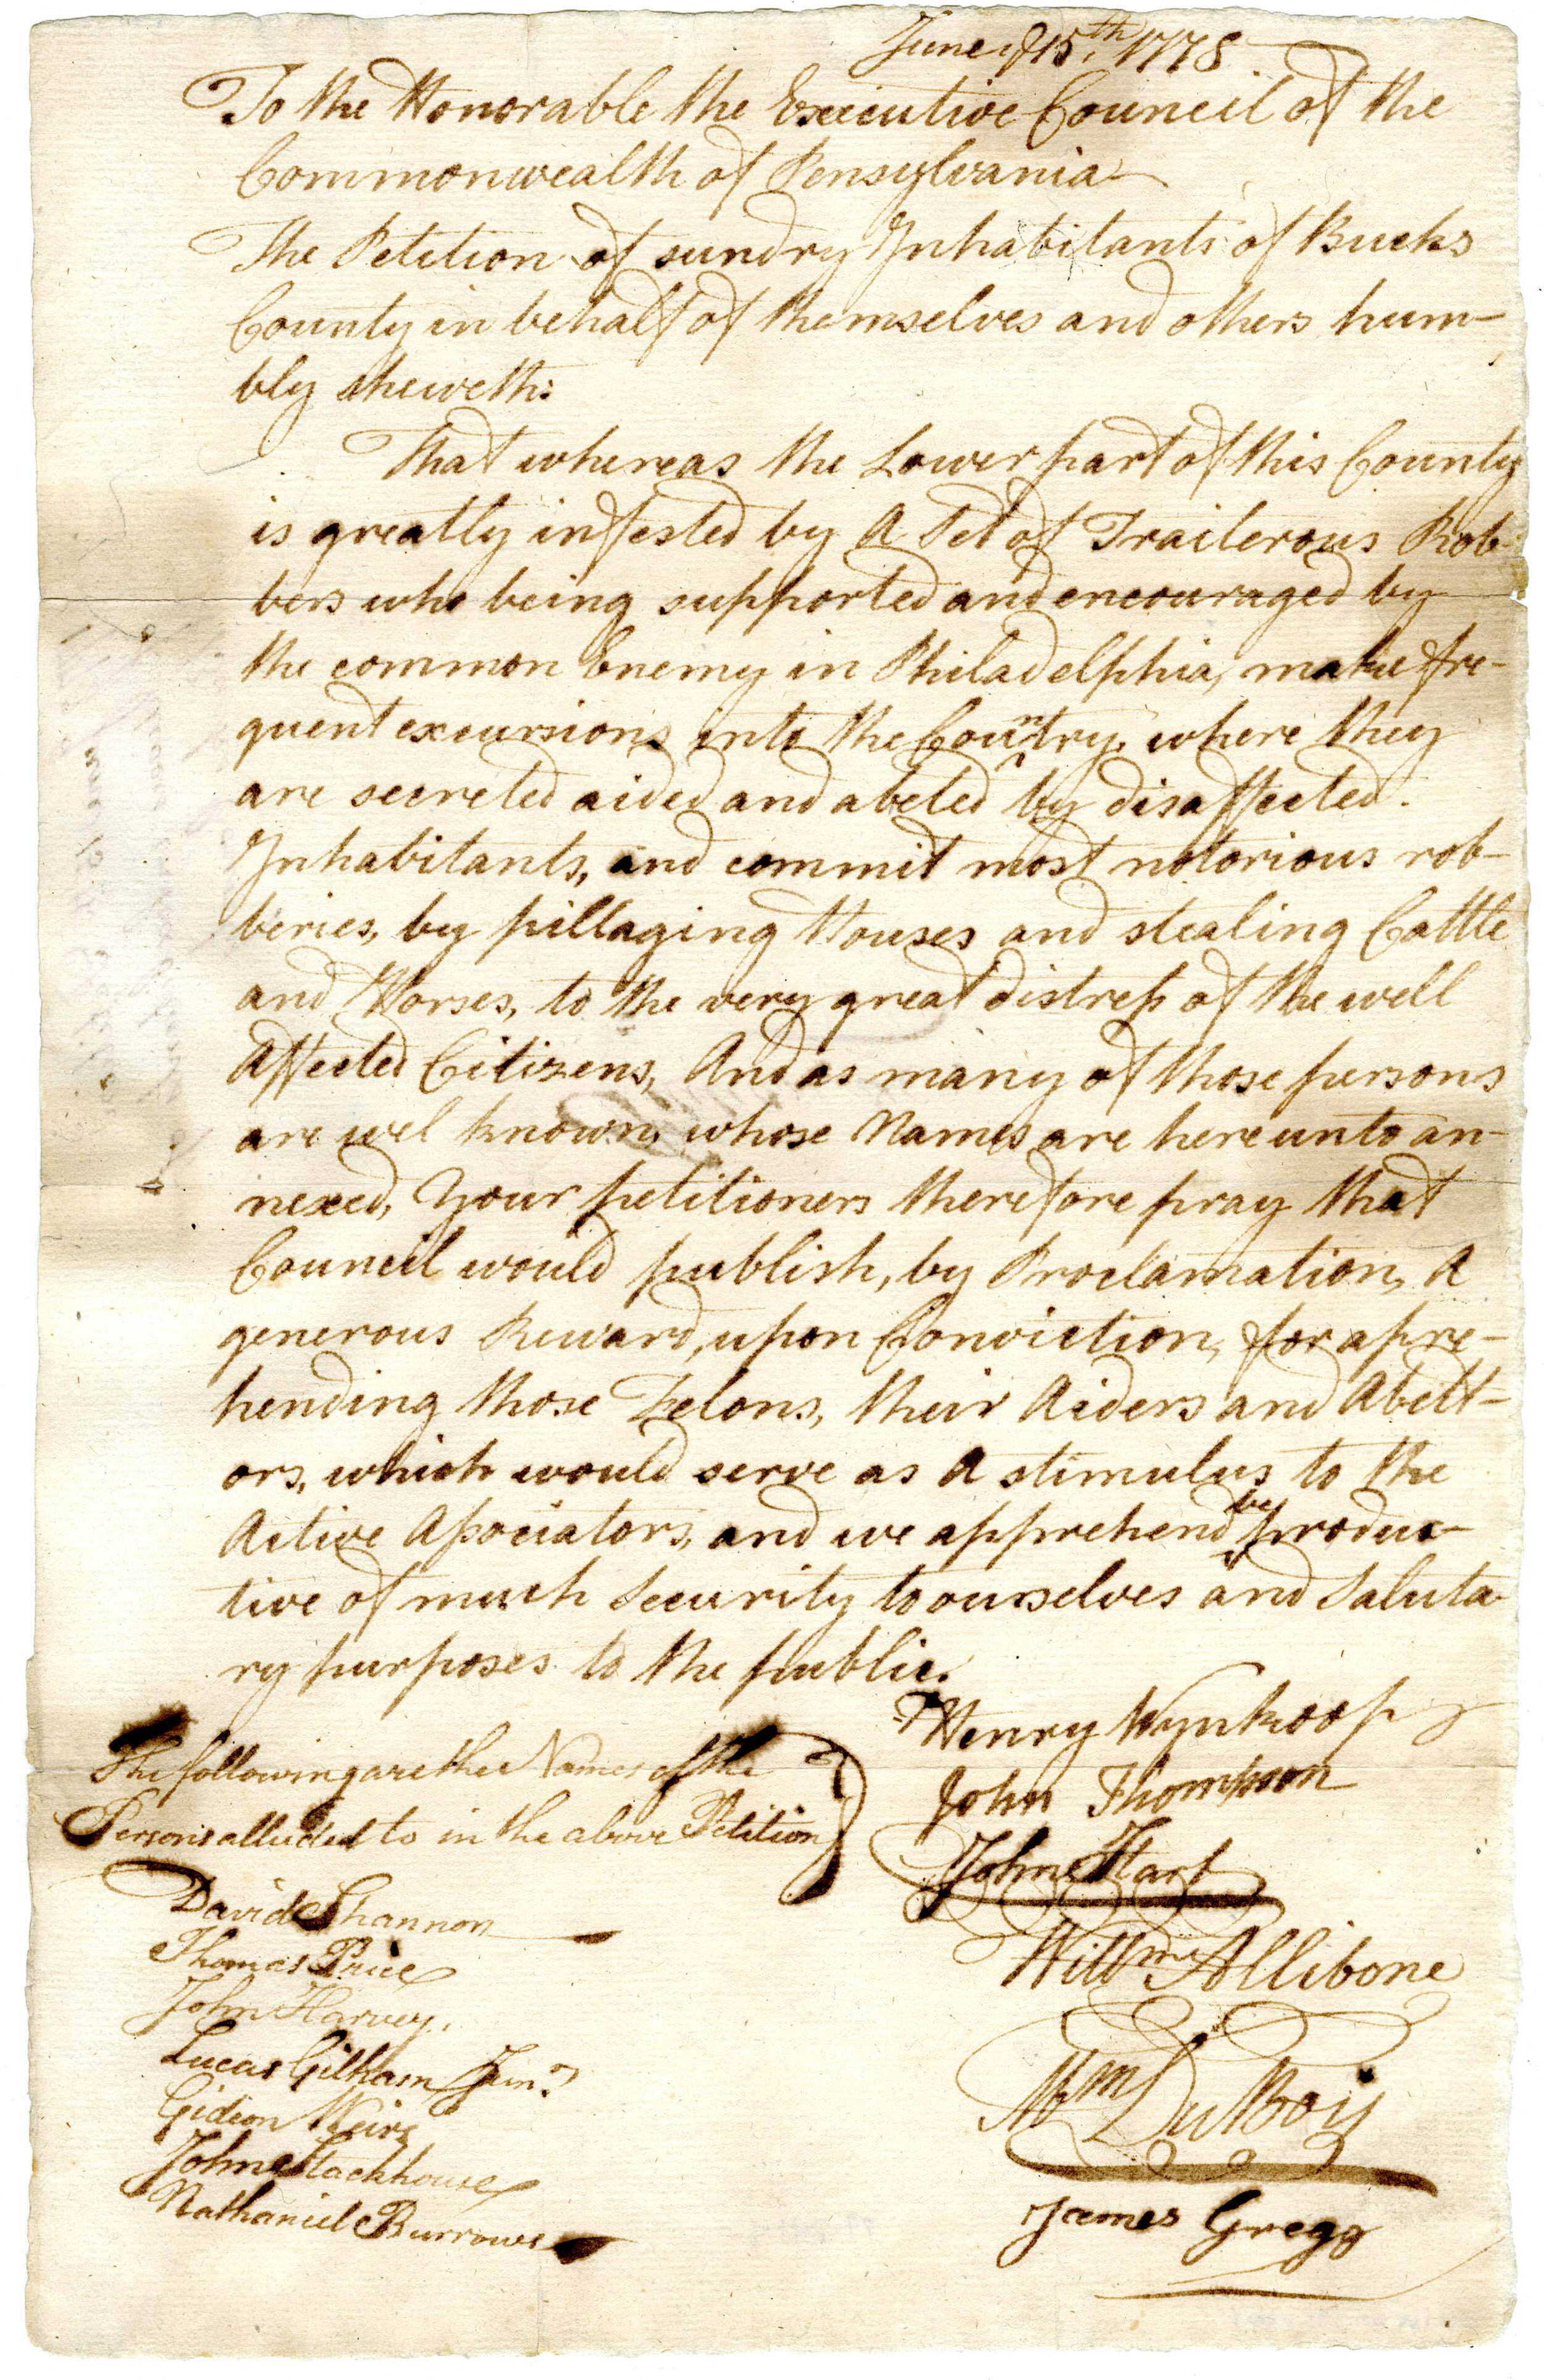 June ye 15th, 1778
To the Honorable the Executive Council of the
Commonwealth of Pensylvania
The Petition of sundry Inhabitants of Bucks
County in behalf of themselves and others hum-
bly sheweth:
That whereas the Lower part of this County
is greatly infested by A Set of Traiterous Rob-
bers who being supported and encouraged by
the common Enemy in Philadelphia, make fre-
quent excursions into the Country, where they
are secreted aided and abeted by disaffected
Inhabitants, and commit most notorious rob-
beries, by pillaging Houses and stealing Cattle
and Horses, to the very great distress of the well
Affected Citizens, And as many of those persons
are wel known, whose Names are hereunto an-
nexed, Your petitioners therefore pray that
Council would publish, by Proclamation, A
generous Reward, upon Conviction, for apre-
hending those Felons, their Aiders and Abett-
ors, which would serve as A stimulus to the
Active Associators, and we apprehend be produc-
tive of much Security to ourselves and Saluta-
ry purposes to the public.
Henry Wynkoop
John Thompson
John Hart
Willm Allibone
Wm DuBois
James Gregg
The following are the Names of the
Persons alluded to in the above Petition
David Shannon
Thomas Price
John Harvey.
Lucas Gilham Junr
Gideon Weirs
John Stackhouse
Nathaniel Burrows